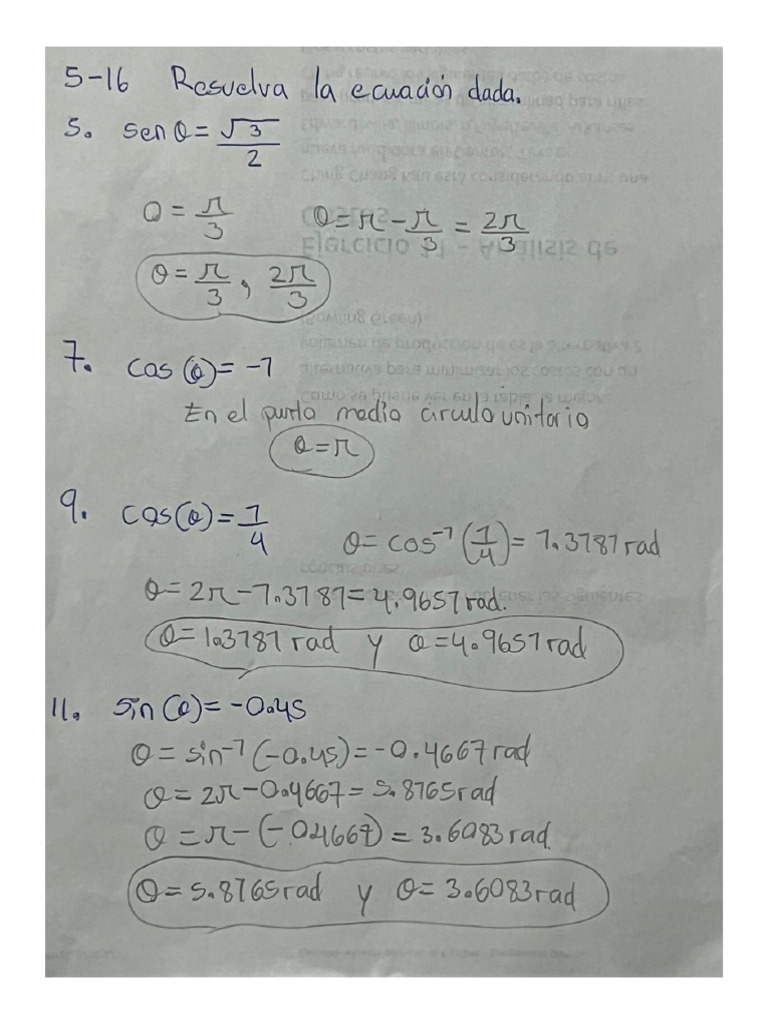 5-16 Resuelva la ecuación dada.
5. sen θ = √3/2
θ = π/3 θ = π - π/3 = 2π/3
θ = π/3, 2π/3
7. cos(θ) = -1
En el punto medio circulo unitario
θ = π
9. cos(θ) = 1/4
θ = cos⁻¹(1/4) = 1.3181 rad
θ = 2π - 1.3181 = 4.9651 rad.
θ = 1.3181 rad y θ = 4.9651 rad
11. Sin(θ) = -0.45
θ = sin⁻¹(-0.45) = -0.4667 rad
θ = 2π - 0.4667 = 5.8165 rad
θ = π - (-0.4667) = 3.6083 rad.
θ = 5.8165 rad y θ = 3.6083 rad